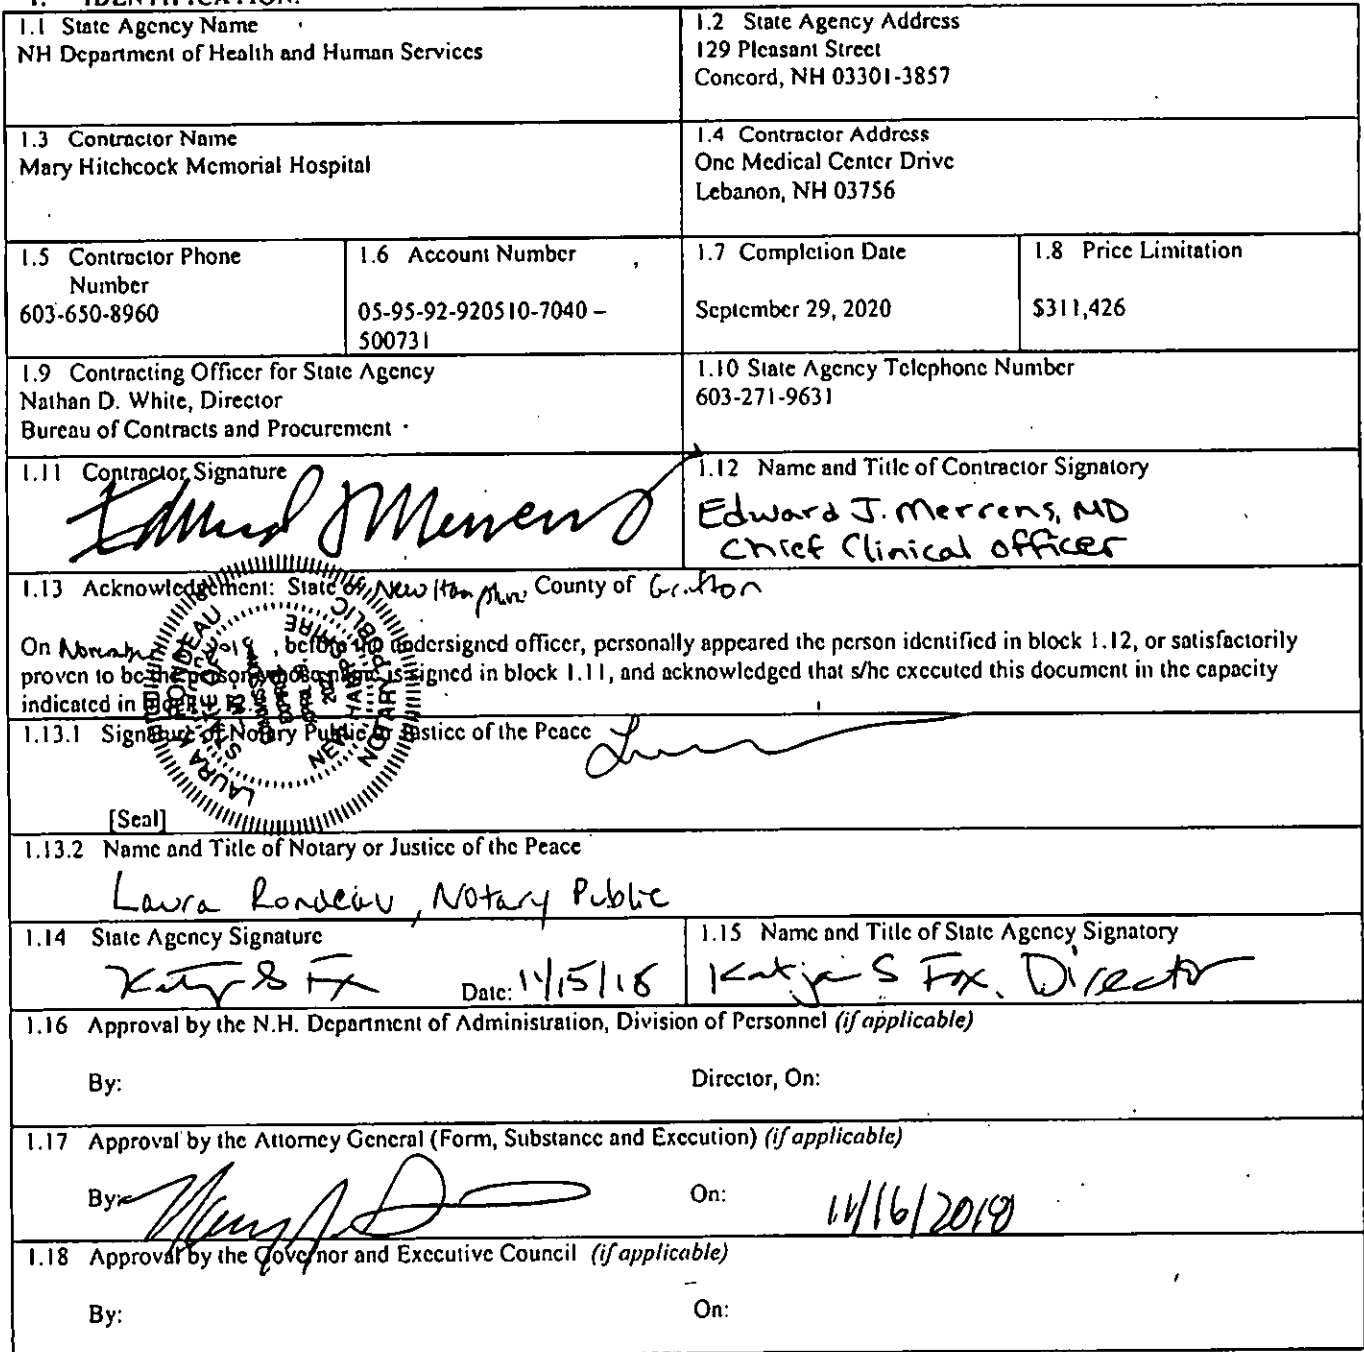 1. IDENTIFICATION.
1.1 State Agency Name
NH Department of Health and Human Services
1.2 State Agency Address
129 Pleasant Street
Concord, NH 03301-3857
1.3 Contractor Name
Mary Hitchcock Memorial Hospital
1.4 Contractor Address
One Medical Center Drive
Lebanon, NH 03756
1.5 Contractor Phone
Number
603-650-8960
1.6 Account Number
05-95-92-920510-7040 –
500731
1.7 Completion Date
September 29, 2020
1.8 Price Limitation
$311,426
1.9 Contracting Officer for State Agency
Nathan D. White, Director
Bureau of Contracts and Procurement
1.10 State Agency Telephone Number
603-271-9631
1.11 Contractor Signature
Edward J Merrens
1.12 Name and Title of Contractor Signatory
Edward J. Merrens, MD
Chief Clinical Officer
1.13 Acknowledgement: State of New Hampshire County of Grafton
On November , before the undersigned officer, personally appeared the person identified in block 1.12, or satisfactorily
proven to be the person whose name is signed in block 1.11, and acknowledged that s/he executed this document in the capacity
indicated in block 1.12.
LAURA RONDEAU
STATE OF NEW HAMPSHIRE
NOTARY PUBLIC
1.13.1 Signature of Notary Public or Justice of the Peace
[Seal]
1.13.2 Name and Title of Notary or Justice of the Peace
Laura Rondeau, Notary Public
1.14 State Agency Signature
Date: 11/15/18
1.15 Name and Title of State Agency Signatory
Katja S Fox, Director
1.16 Approval by the N.H. Department of Administration, Division of Personnel (if applicable)
By: Director, On:
1.17 Approval by the Attorney General (Form, Substance and Execution) (if applicable)
By: On: 11/16/2018
1.18 Approval by the Governor and Executive Council (if applicable)
By: On: